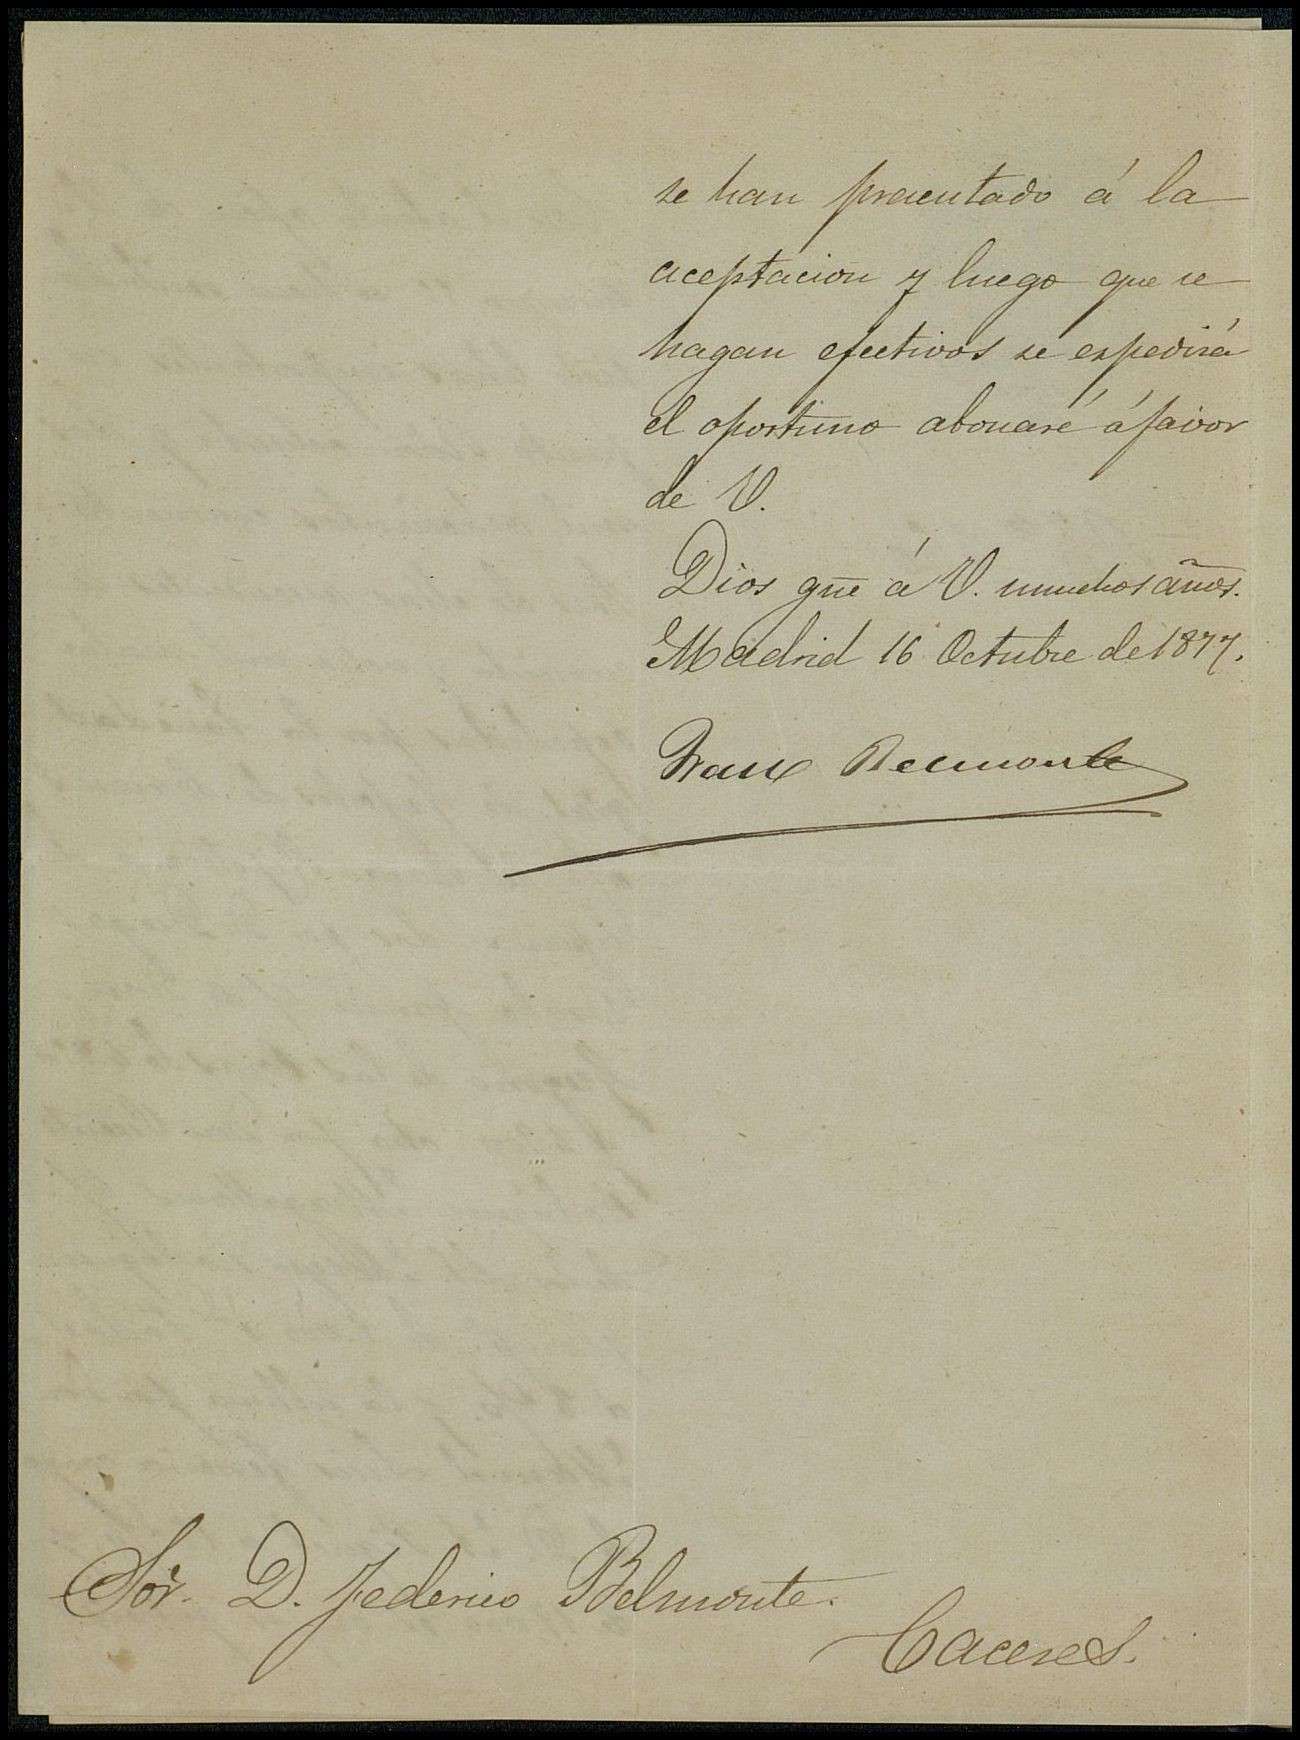 se han presentado á la
aceptacion y luego que se
hagan efectivos se espedirá
el oportuno abonaré á favor
de V.
Dios gũe á V. muchos años.
Madrid 16 Octubre de 1877.
Belmonte
Sor. D. Federico Belmonte.
Caceres.